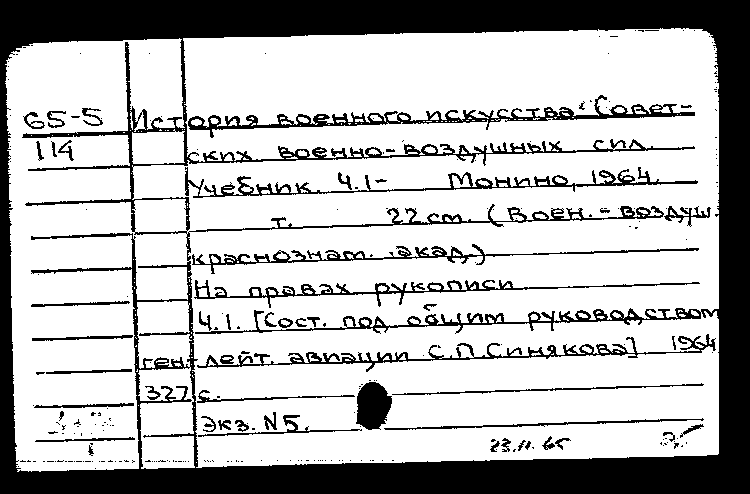 65-5 История военного искусства Совет-
114 ских военно-воздушных сил.
Учебник. Ч.1- Монино, 1964.
т. 22 см. (Воен.-воздуш.
краснознам. акад.)
На правах рукописи
Ч.1. [Сост. под общим руководством
ген.-лейт. авиации С.П.Синякова] 1964
327 с.
Экз. N5.
23.11.65